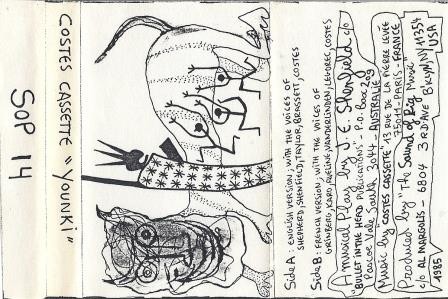 SOP 14
COSTES CASSETTE "YOUNKI"
SIDE A: ENGLISH VERSION; WITH THE VOICES OF
SHEPHERD, SHENFIELD, TAYLOR, BRASSETT, COSTES
SIDE B: FRENCH VERSION; WITH THE VOICES OF
GRINBERG, KAPO, AVELINE, VANDERLINDEN, COSTES
A musical Play by J. E. Shenfield c/o
"BULLET IN THE HEAD PUBLICATIONS" - P.O. Box 209
Pascoe Vale South, 3044 - AUSTRALIE
Music by COSTES CASSETTE 13 RUE DE LA PIERRE LEVÉE
75011 - PARIS - FRANCE
Produced by "The Sound of Pig Music
c/o AL MARGOLIS - 6804 3RD AVE B'KLYN, NY 11354
1985 USA